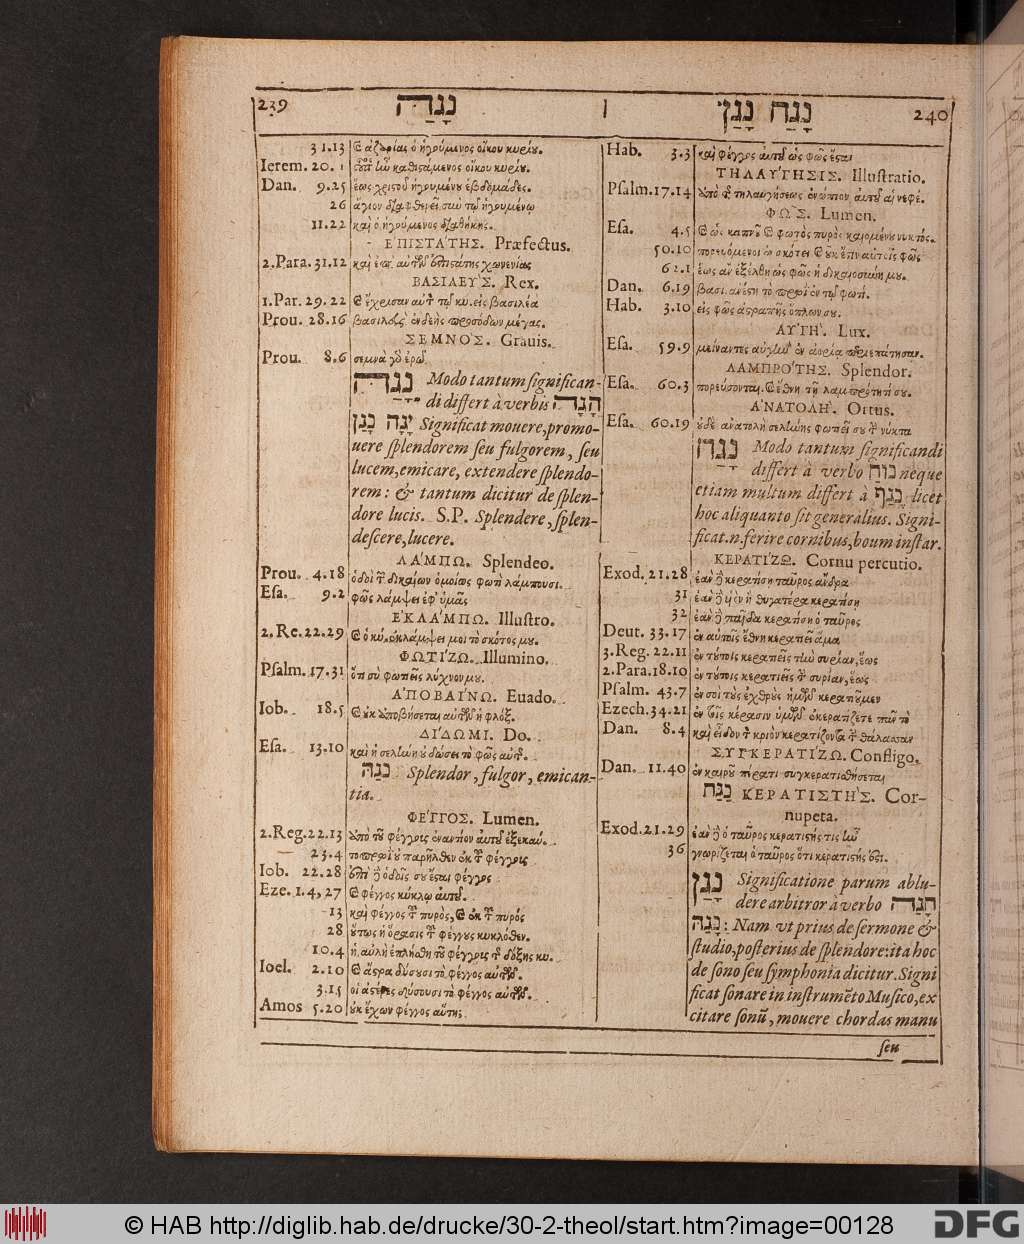 239 נגה
נגח נגן 240
31.13 ἀζαρίας ὁ ἡγούμενος οἴκου κυρίου.
Ierem. 20. 1
Dan. 9.25 ἕως χριστοῦ ἡγουμένου ἑβδομάδες.
26 ἅγιον διαφθερεῖ σὺν τῷ ἡγουμένῳ
11.22 καὶ ὁ ἡγούμενος διαθήκης.
ἘΠΙΣΤΆΤΗΣ. Præfectus.
2.Para. 31.12
ΒΑΣΙΛΕΎΣ. Rex.
1.Par. 29.22 εἰς βασιλέα
Prou. 28.16 βασιλεὺς ἐνδεὴς προσόδων μέγας.
ΣΕΜΝΌΣ. Grauis.
Prou. 8.6 σεμνὰ γὸ ἐρῶ
נגה Modo tantum significan-
di differt à verbis הגה
ינה כנן Significat mouere, promo-
uere splendorem seu fulgorem, seu
lucem, emicare, extendere splendo-
rem: & tantum dicitur de splen-
dore lucis. S.P. Splendere, splen-
descere, lucere.
ΛΆΜΠΩ. Splendeo.
Prou. 4.18 ὁδοὶ τῶν δικαίων ὁμοίως φωτὶ λάμπουσι.
Esa. 9.2 φῶς λάμψει ἐφ' ὑμᾶς
ἘΚΛΆΜΠΩ. Illustro.
2. Re. 22.29 ὁ κύ. ἐκλάμψει μοι τὸ σκότος μου.
ΦΩΤΊΖΩ. Illumino.
Psalm. 17.31 ὅτι σὺ φωτιεῖς λύχνον μου.
ἈΠΟΒΑΊΝΩ. Euado.
Iob. 18.5
ΔΊΔΩΜΙ. Do.
Esa. 13.10 καὶ ἡ σελήνη οὐ δώσει τὸ φῶς αὐτῆς.
נגה Splendor, fulgor, emican-
tia.
ΦΈΓΓΟΣ. Lumen.
2. Reg. 22.13 ἀπὸ τοῦ φέγγους ἐναντίον αὐτοῦ ἐξεκαύ.
23.4 τοπρωῒ οὐ παρῆλθεν ἐκ τοῦ φέγγους
Iob. 22.28
Eze. 1.4,27 φέγγος κύκλῳ αὐτοῦ.
13 καὶ φέγγος τοῦ πυρὸς, ἐκ τοῦ πυρός
28 οὕτως ἡ ὅρασις τοῦ φέγγους κυκλόθεν.
10.4 ἡ αὐλὴ ἐπλήσθη τοῦ φέγγους τῆς δόξης κυ.
Ioel. 2.10 ἄστρα δύσουσι τὸ φέγγος αὐτῶν.
3.15 οἱ ἀστέρες δύσουσι τὸ φέγγος αὐτῶν.
Amos 5.20 οὐκ ἔχων φέγγος αὕτη;
Hab. 3.3 καὶ φέγγος αὐτοῦ ὡς φῶς ἔσται
ΤΗΛΑΎΓΗΣΙΣ. Illustratio.
Psalm. 17.14 ἀπὸ τῆς τηλαυγήσεως ἐνώπιον αὐτοῦ αἱ νεφέ.
ΦΩ͂Σ. Lumen.
Esa. 4.5 ὡς καπνοῦ φωτὸς πυρὸς καιομένου νυκτός.
50.10
62.1 ἕως ἂν ἐξέλθῃ ὡς φῶς ἡ δικαιοσύνη μου.
Dan. 6.19
Hab. 3.10 εἰς φῶς ἀστραπῆς ὅπλων σου.
ΑΥ̓ΓΉ. Lux.
Esa. 59.9 μείναντες αὐγὴν ἐν ἀωρίᾳ περιεπάτησαν.
ΛΑΜΠΡΌΤΗΣ. Splendor.
Esa. 60.3 πορεύσονται ἔθνη τῇ λαμπρότητί σου.
ἈΝΑΤΟΛΉ. Ortus.
Esa. 60.19 οὐδὲ ἀνατολὴ σελήνης φωτιεῖ σου τὴν νύκτα
נגח Modo tantum significandi
differt à verbo נוח neque
etiam multum differt à נגף licet
hoc aliquanto sit generalius. Signi-
ficat.n. ferire cornibus, boum instar.
ΚΕΡΑΤΊΖΩ. Cornu percutio.
Exod. 21.28 ἐὰν κερατίσῃ ταῦρος ἄνδρα
31 ἐὰν υἱὸν ἢ θυγατέρα κερατίσῃ
32 ἐὰν παῖδα κερατίσῃ ὁ ταῦρος
Deut. 33.17 ἐν αὐτοῖς ἔθνη κερατιεῖ ἅμα
3. Reg. 22.11 ἐν τούτοις κερατιεῖς τὴν συρίαν, ἕως
2. Para. 18.10 ἐν τούτοις κερατιεῖς τὴν συρίαν, ἕως
Psalm. 43.7 ἐν σοὶ τοὺς ἐχθροὺς ἡμῶν κερατιοῦμεν
Ezech. 34.21 ἐν τοῖς κέρασιν ὑμῶν ἐκερατίζετε πᾶν τὸ
Dan. 8.4 καὶ εἶδον τὸν κριὸν κερατίζοντα τὴν θάλασσαν
ΣΥΓΚΕΡΑΤΊΖΩ. Confligo.
Dan. 11.40 ἐν καιροῦ πέρατι συγκερατισθήσεται
נגח ΚΕΡΑΤΙΣΤΉΣ. Cor-
nupeta.
Exod. 21.29 ἐὰν ὁ ταῦρος κερατιστής τις ἦν
36 γνωρίζεται ὁ ταῦρος ὅτι κερατιστής ἐστι.
נגן Significatione parum ablu-
dere arbitror à verbo הגה
נגה: Nam vt prius de sermone &
studio, posterius de splendore: ita hoc
de sono seu symphonia dicitur. Signi
ficat sonare in instrumēto Musico, ex
citare sonū, mouere chordas manu
seu
© HAB http://diglib.hab.de/drucke/30-2-theol/start.htm?image=00128
DFG